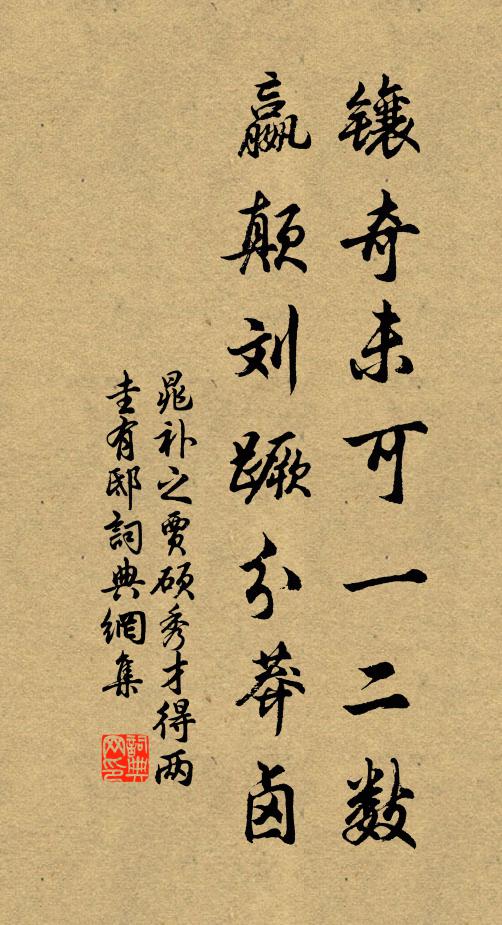 镶奇未可一二数
赢颠刘蹶分莽卤
晁补之贾硕秀才得两
圭有邸詞典網集
詞典网印